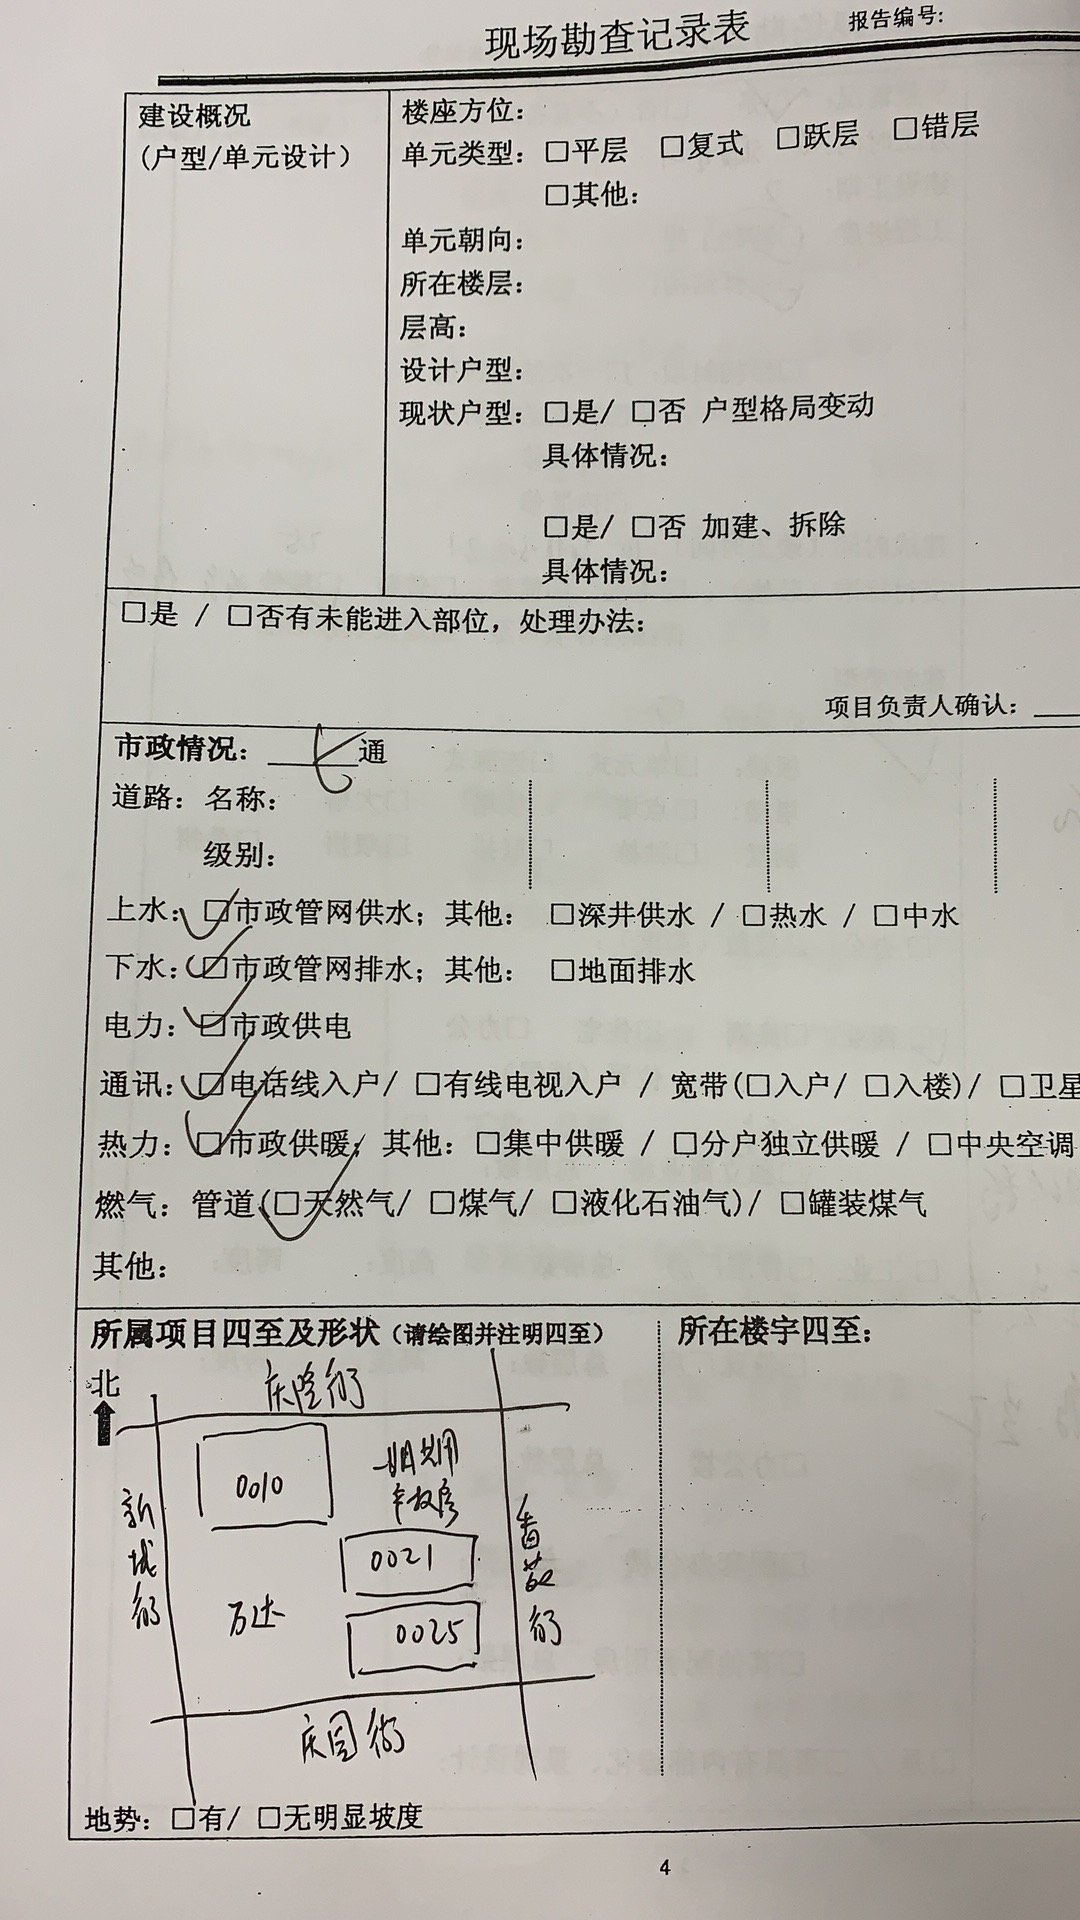 现场勘查记录表
报告编号:
建设概况
(户型/单元设计)
楼座方位:
单元类型: □平层 □复式 □跃层 □错层
□其他:
单元朝向:
所在楼层:
层高:
设计户型:
现状户型: □是/ □否 户型格局变动
具体情况:
□是/ □否 加建、拆除
具体情况:
□是 / □否有未能进入部位，处理办法:
项目负责人确认:
市政情况: 七通
道路: 名称:
级别:
上水: □市政管网供水; 其他: □深井供水 / □热水 / □中水
下水: □市政管网排水; 其他: □地面排水
电力: □市政供电
通讯: □电话线入户/ □有线电视入户 / 宽带(□入户/ □入楼)/ □卫星
热力: □市政供暖; 其他: □集中供暖 / □分户独立供暖 / □中央空调
燃气: 管道(□天然气/ □煤气/ □液化石油气)/ □罐装煤气
其他:
所属项目四至及形状 (请绘图并注明四至)
所在楼宇四至:
北
庆隆街
0010
新城街
0021
万达
0025
庆国街
地势: □有/ □无明显坡度
4